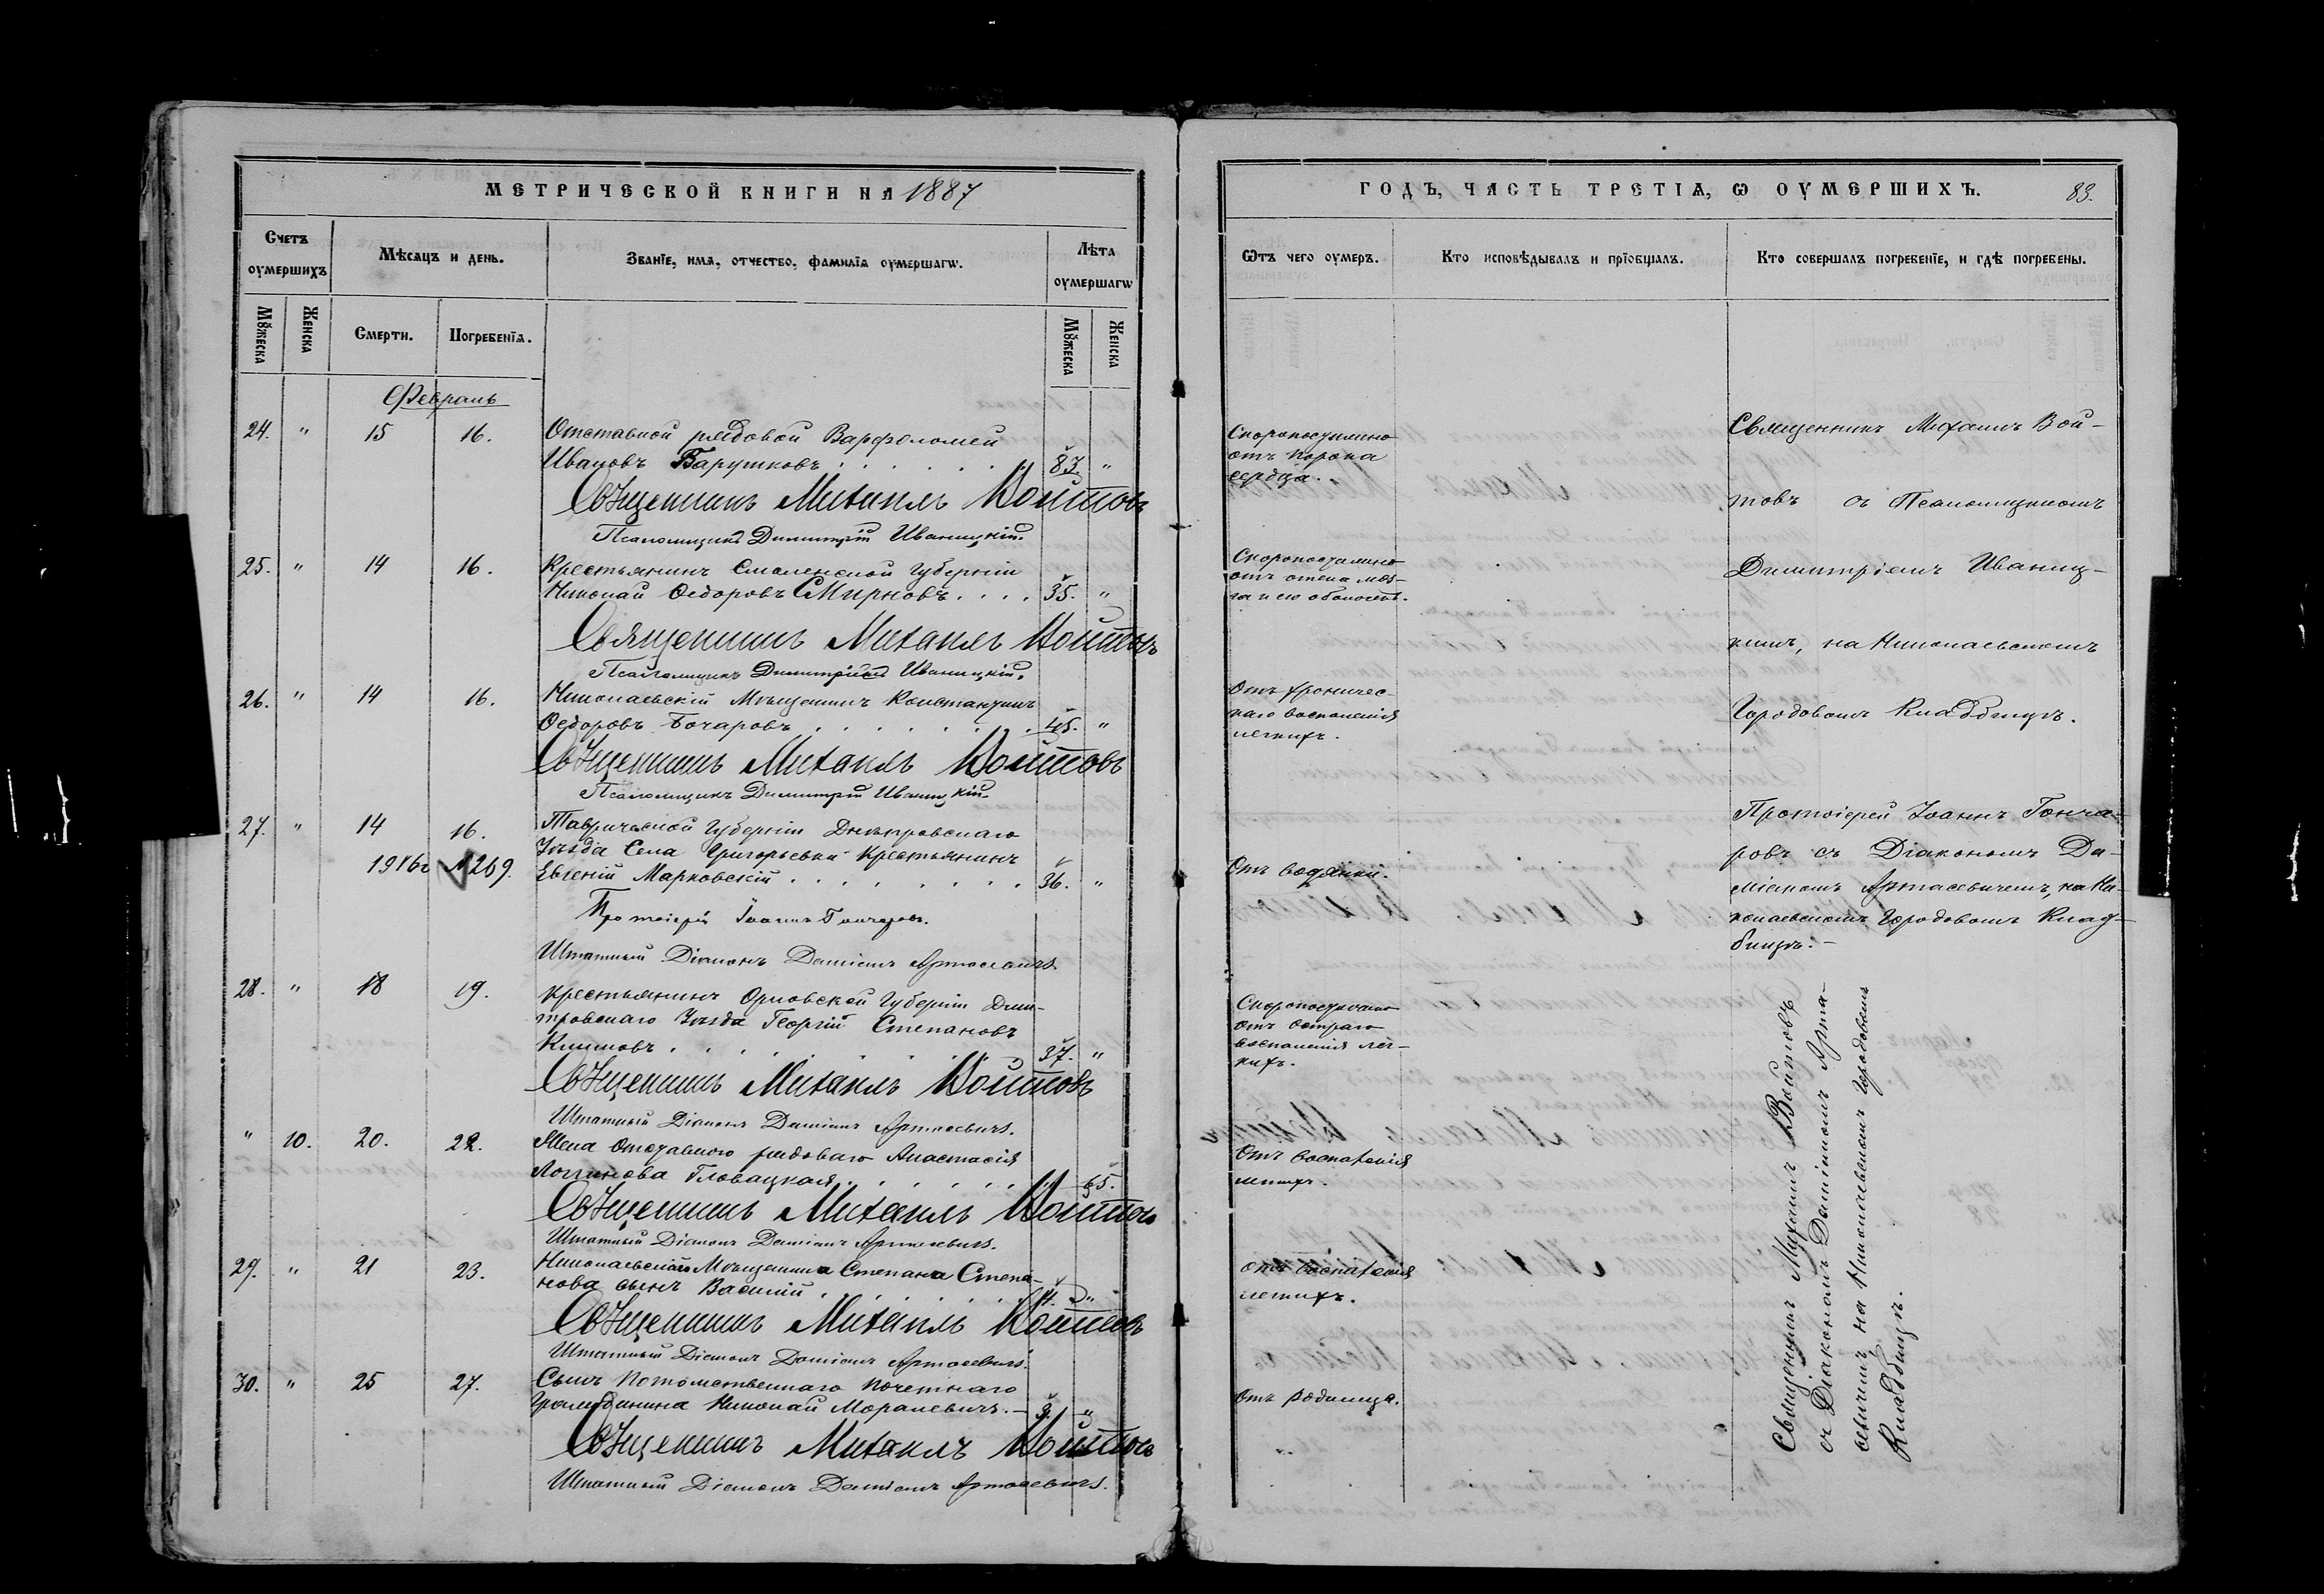 МЕТРИЧЕСКОЙ КНИГИ НА 1887
Счетъ оумершихъ
Мѣсяцъ и день.
Званїе, имя, отчество, фамилїя оумершагѡ.
Лѣта оумершагѡ
Мꙋжеска
Женска
Смерти.
Погребенїѧ.
Мꙋжеска
Женска
Февраль
24. " 15 16. Отставной рядовой Варфоломей
Ивановъ Барушковъ . . . . . . 83. "
Священникъ Михаилъ Войтовъ
Псаломщикъ Димитрій Иваницкій.
25. " 14 16. Крестьянинъ Смоленской Губерніи
Николай Ѳедоровъ Смирновъ . . . . 35. "
Священникъ Михаилъ Войтовъ
Псаломщикъ Димитрій Иваницкій.
26. " 14 16. Николаевскій Мѣщанинъ Константинъ
Ѳедоровъ Бочаровъ . . . . . . . 45. "
Священникъ Михаилъ Войтовъ
Псаломщикъ Димитрій Иваницкій.
27. " 14 16. Таврической Губерніи Днѣпровскаго
Уѣзда Села Григорьевки Крестьянинъ
1916г №269. Евгеній Марковскій . . . . . . . . 36. "
Протоіерей Іоаннъ Гончаровъ.
Штатный Діаконъ Даміанъ Артасевичъ.
28. " 18 19. Крестьянинъ Орловской Губерніи Дми-
тровскаго Уѣзда Георгій Степановъ
Климовъ . . . . . . . . 37. "
Священникъ Михаилъ Войтовъ
Штатный Діаконъ Даміанъ Артасевичъ.
" 10. 20. 22. Жена отставного рядового Анастасія
Логинова Гловацкая . . . . . . . " 65.
Священникъ Михаилъ Войтовъ
Штатный Діаконъ Даміанъ Артасевичъ.
29. " 21 23. Николаевскаго Мѣщанина Степана Степа-
нова сынъ Василій . . . . . . "
Священникъ Михаилъ Войтовъ
Штатный Діаконъ Даміанъ Артасевичъ.
30. " 25 27. Сынъ Потомственнаго Почетнаго
Гражданина Николай Моралевичъ. — 3. "
Священникъ Михаилъ Войтовъ
Штатный Діаконъ Даміанъ Артасевичъ.
ГОДЪ, ЧАСТЬ ТРЕТІѦ, Ѡ ОУМЕРШИХЪ. 83.
Ѡтъ чего оумеръ.
Кто исповѣдывалъ и прїобщалъ.
Кто совершалъ погребенїе, и гдѣ погребены.
Скоропостижно
отъ порока
сердца.
Скоропостижно
отъ отека моз-
га и его оболочекъ.
Отъ хроничес-
каго воспаленія
легкихъ.
Отъ водянки.
Скоропостижно
отъ остраго
воспаленія лег-
кихъ.
Отъ воспаленія
легкихъ.
отъ воспаленія
легкихъ.
Отъ родимца.
Священникъ Михаилъ Вой-
товъ съ Псаломщикомъ
Димитріемъ Иваниц-
кимъ, на Николаевскомъ
Городовомъ Кладбищѣ.
Протоіерей Іоаннъ Гонча-
ровъ съ Діакономъ Да-
міаномъ Артасевичемъ, на Ни-
колаевскомъ Городовомъ Клад-
бищѣ.—
Священникъ Михаилъ Войтовъ
съ Діакономъ Даміаномъ Арта-
севичемъ на Николаевскомъ Городовомъ
Кладбищѣ.